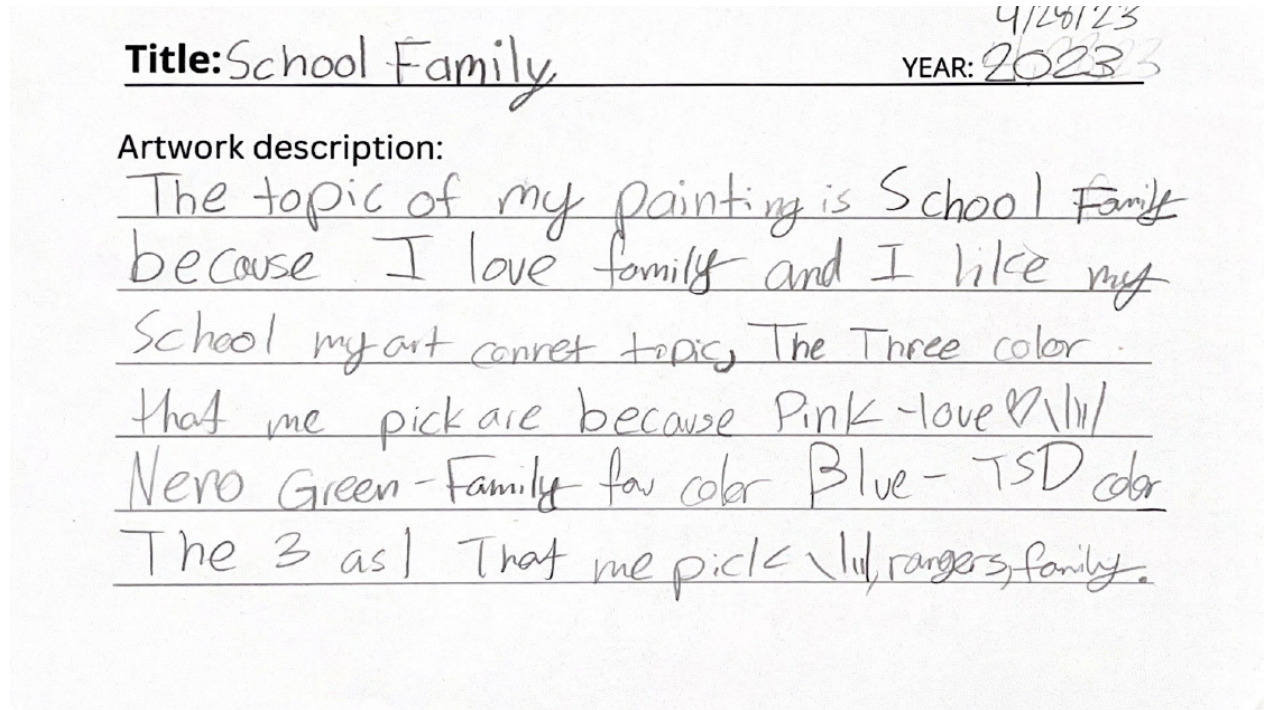 4/28/23
Title: School Family YEAR: 2023
Artwork description:
The topic of my painting is School Family
because I love family and I like my
School my art conret topic, The Three color
that me pick are because Pink -love ♡\|ıı/
Nero Green - Family fav color Blue - TSD color
The 3 asl That me pick \|ıı|, rangers, family.